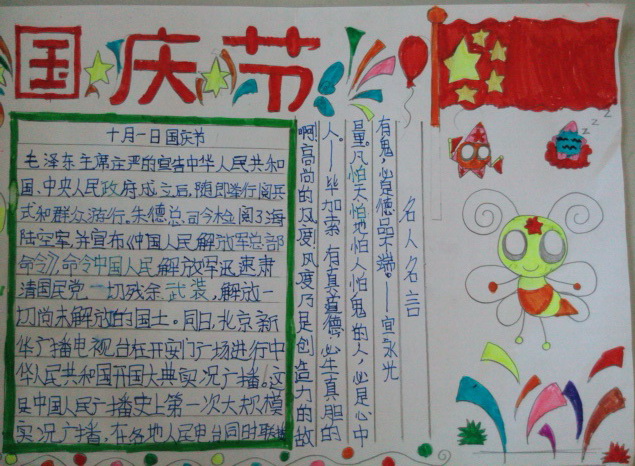 国庆节
十月一日国庆节
毛泽东主席庄严的宣告中华人民共和
国、中央人民政府成立后,随即举行阅兵
式和群众游行。朱德总司令检阅了海
陆空军,并宣布《中国人民解放军总部
命令》,命令中国人民解放军迅速肃
清国民党一切残余武装,解放一
切尚未解放的国土。同日,北京新
华广播电视台在开安门广场进行中
华人民共和国开国大典实况广播。这
是中国人民广播史上第一次大规模
实况广播,在各地人民电台同时联播
名人名言
有鬼,必是德品不端。——宣永光
量。凡怕天怕地怕人怕鬼的人,必是心中
人。——毕加索 有真道德,必生真胆的
啊,高尚的风度!风度乃是创造力的敌
z z z